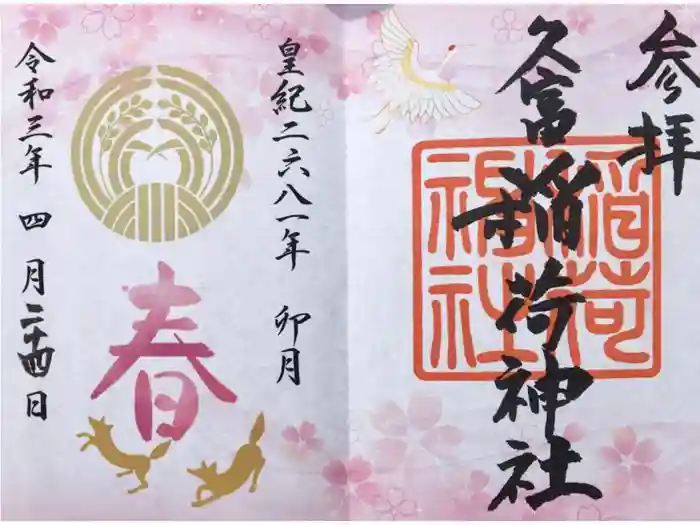 参拝
久富稲荷神社
稲荷
神社
皇紀二六八一年 卯月
春
令和三年 四月二十四日